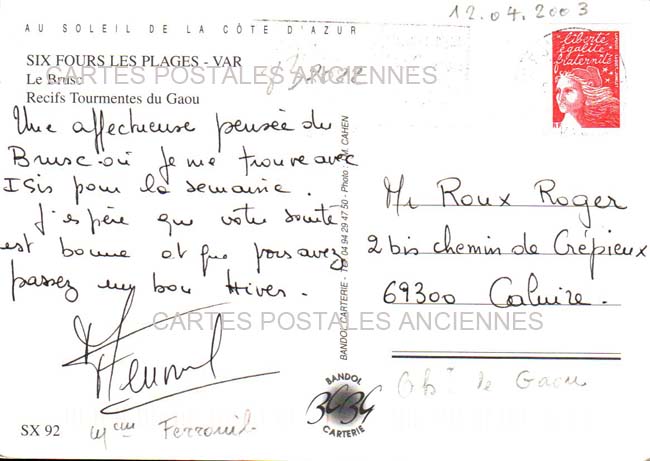 AU SOLEIL DE LA CÔTE D'AZUR
12.04.2003
liberté
égalité
fraternité
SIX FOURS LES PLAGES - VAR
Le Brusc
Recifs Tourmentes du Gaou
CARTES POSTALES ANCIENNES
Une affectueuse pensée du
Brusc où je me trouve avec
Isis pour la semaine.
J'espère que votre santé
est bonne et que vous avez
passez un bon Hiver.
BANDOL CARTERIE - Tél 04 94 29 47 50 - Photo : M. CAHEN
Mr Roux Roger
2 bis chemin de Crépieux
69300 Caluire.
CARTES POSTALES ANCIENNES
BANDOL
CARTERIE
de Gaou
SX 92